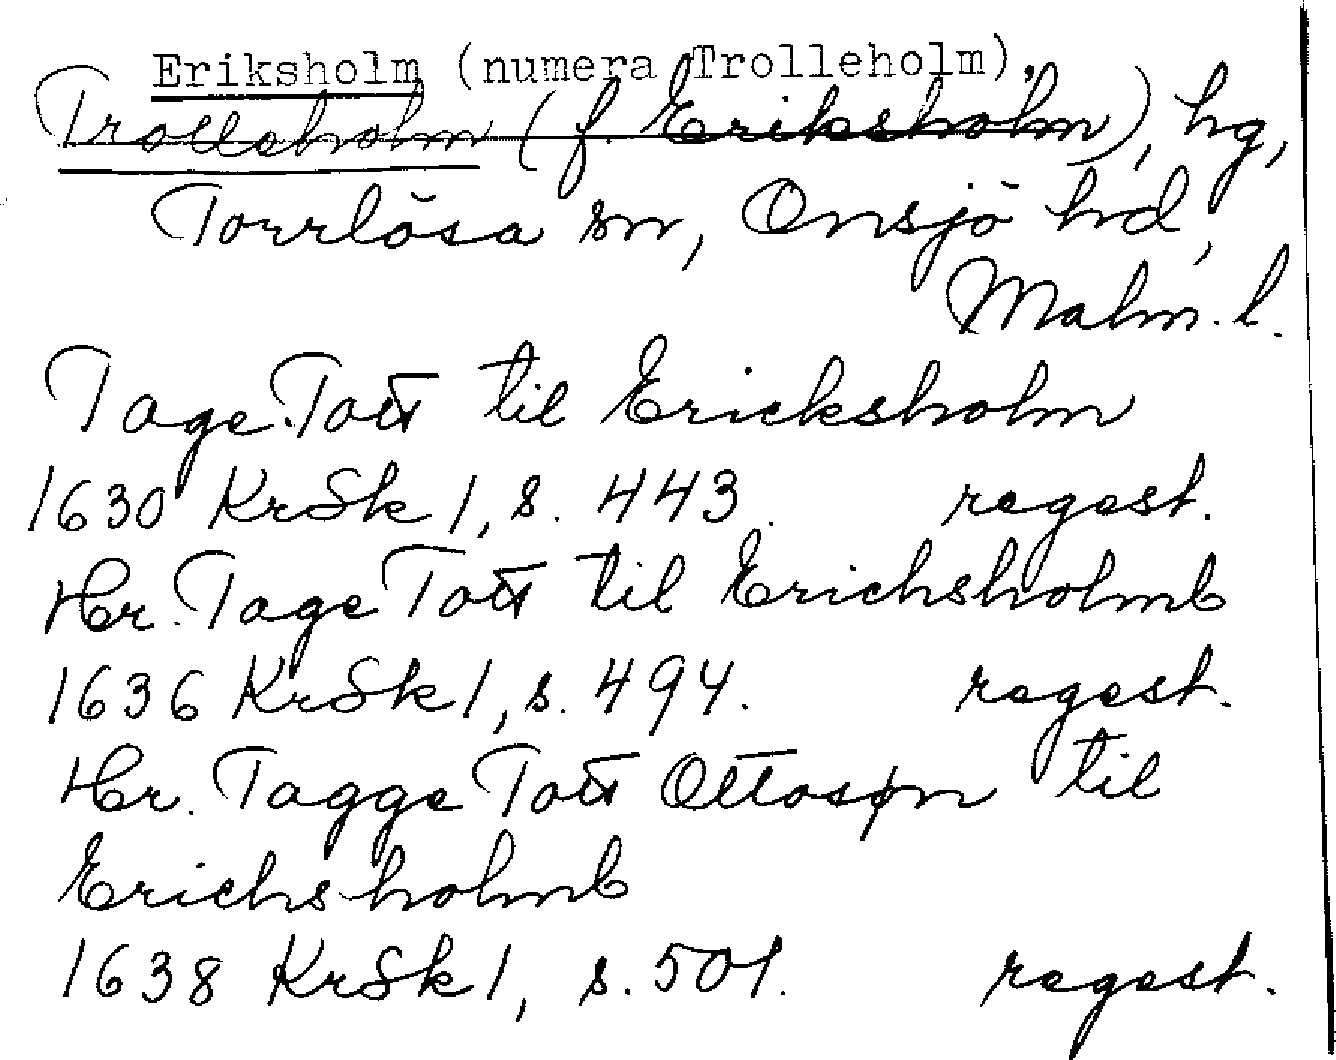 Eriksholm (numera Trolleholm),
Trolleholm (f. Eriksholm), hg,
Torrlösa sn, Onsjö hd,
Malm. l.
Tage Tott til Ericksholm
1630 KrSk 1, s. 443. regest.
Hr. Tage Tott til Erichsholmb
1636 KrSk 1, s. 494. regest.
Hr. Tagge Tott Ottosøn til
Erichsholmb
1638 KrSk 1, s. 501. regest.